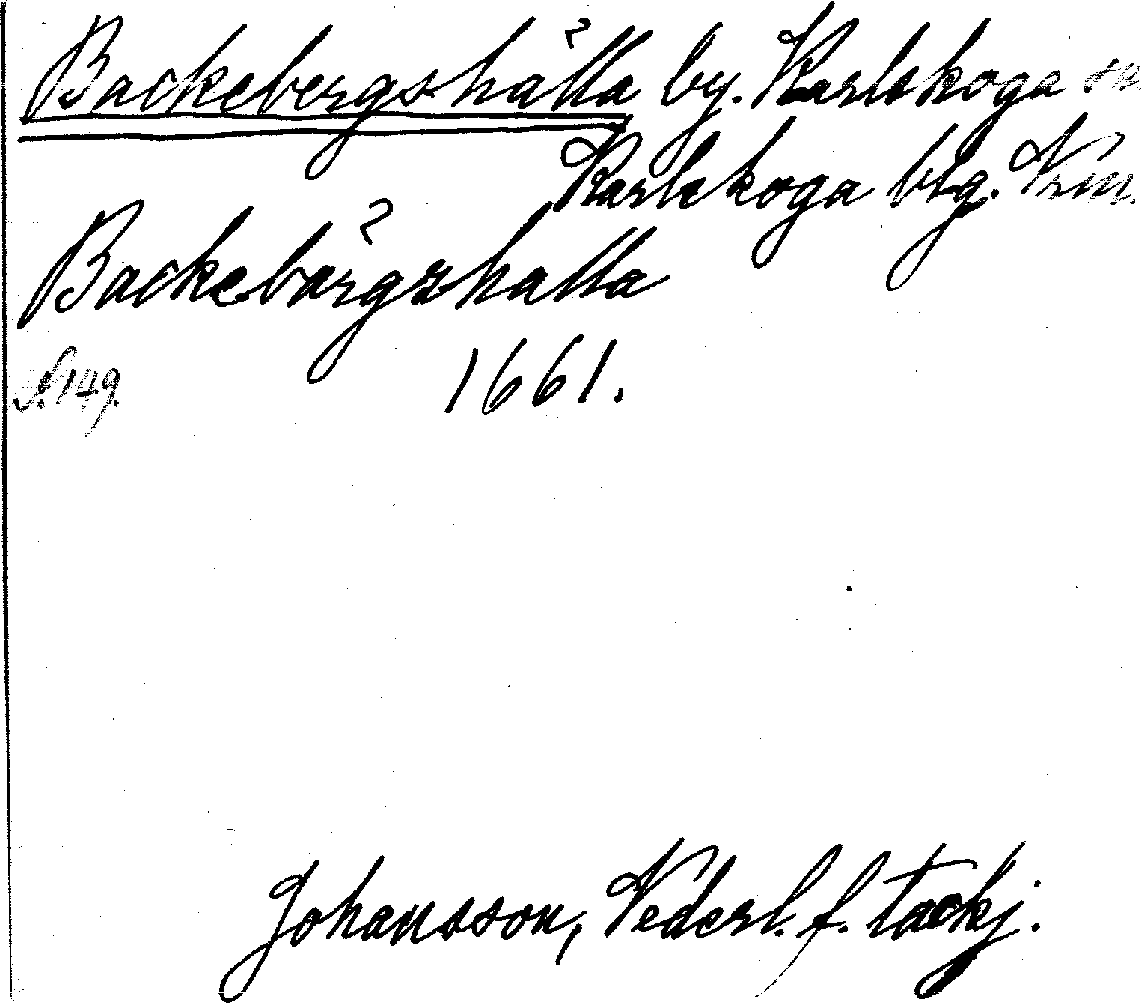 Backebergshälla by. Karlskoga sn
Karlskoga bsg. Vrm.
Backebärgzhalla
S. 149. 1661.
Johansson, Nederl. f. tackj.